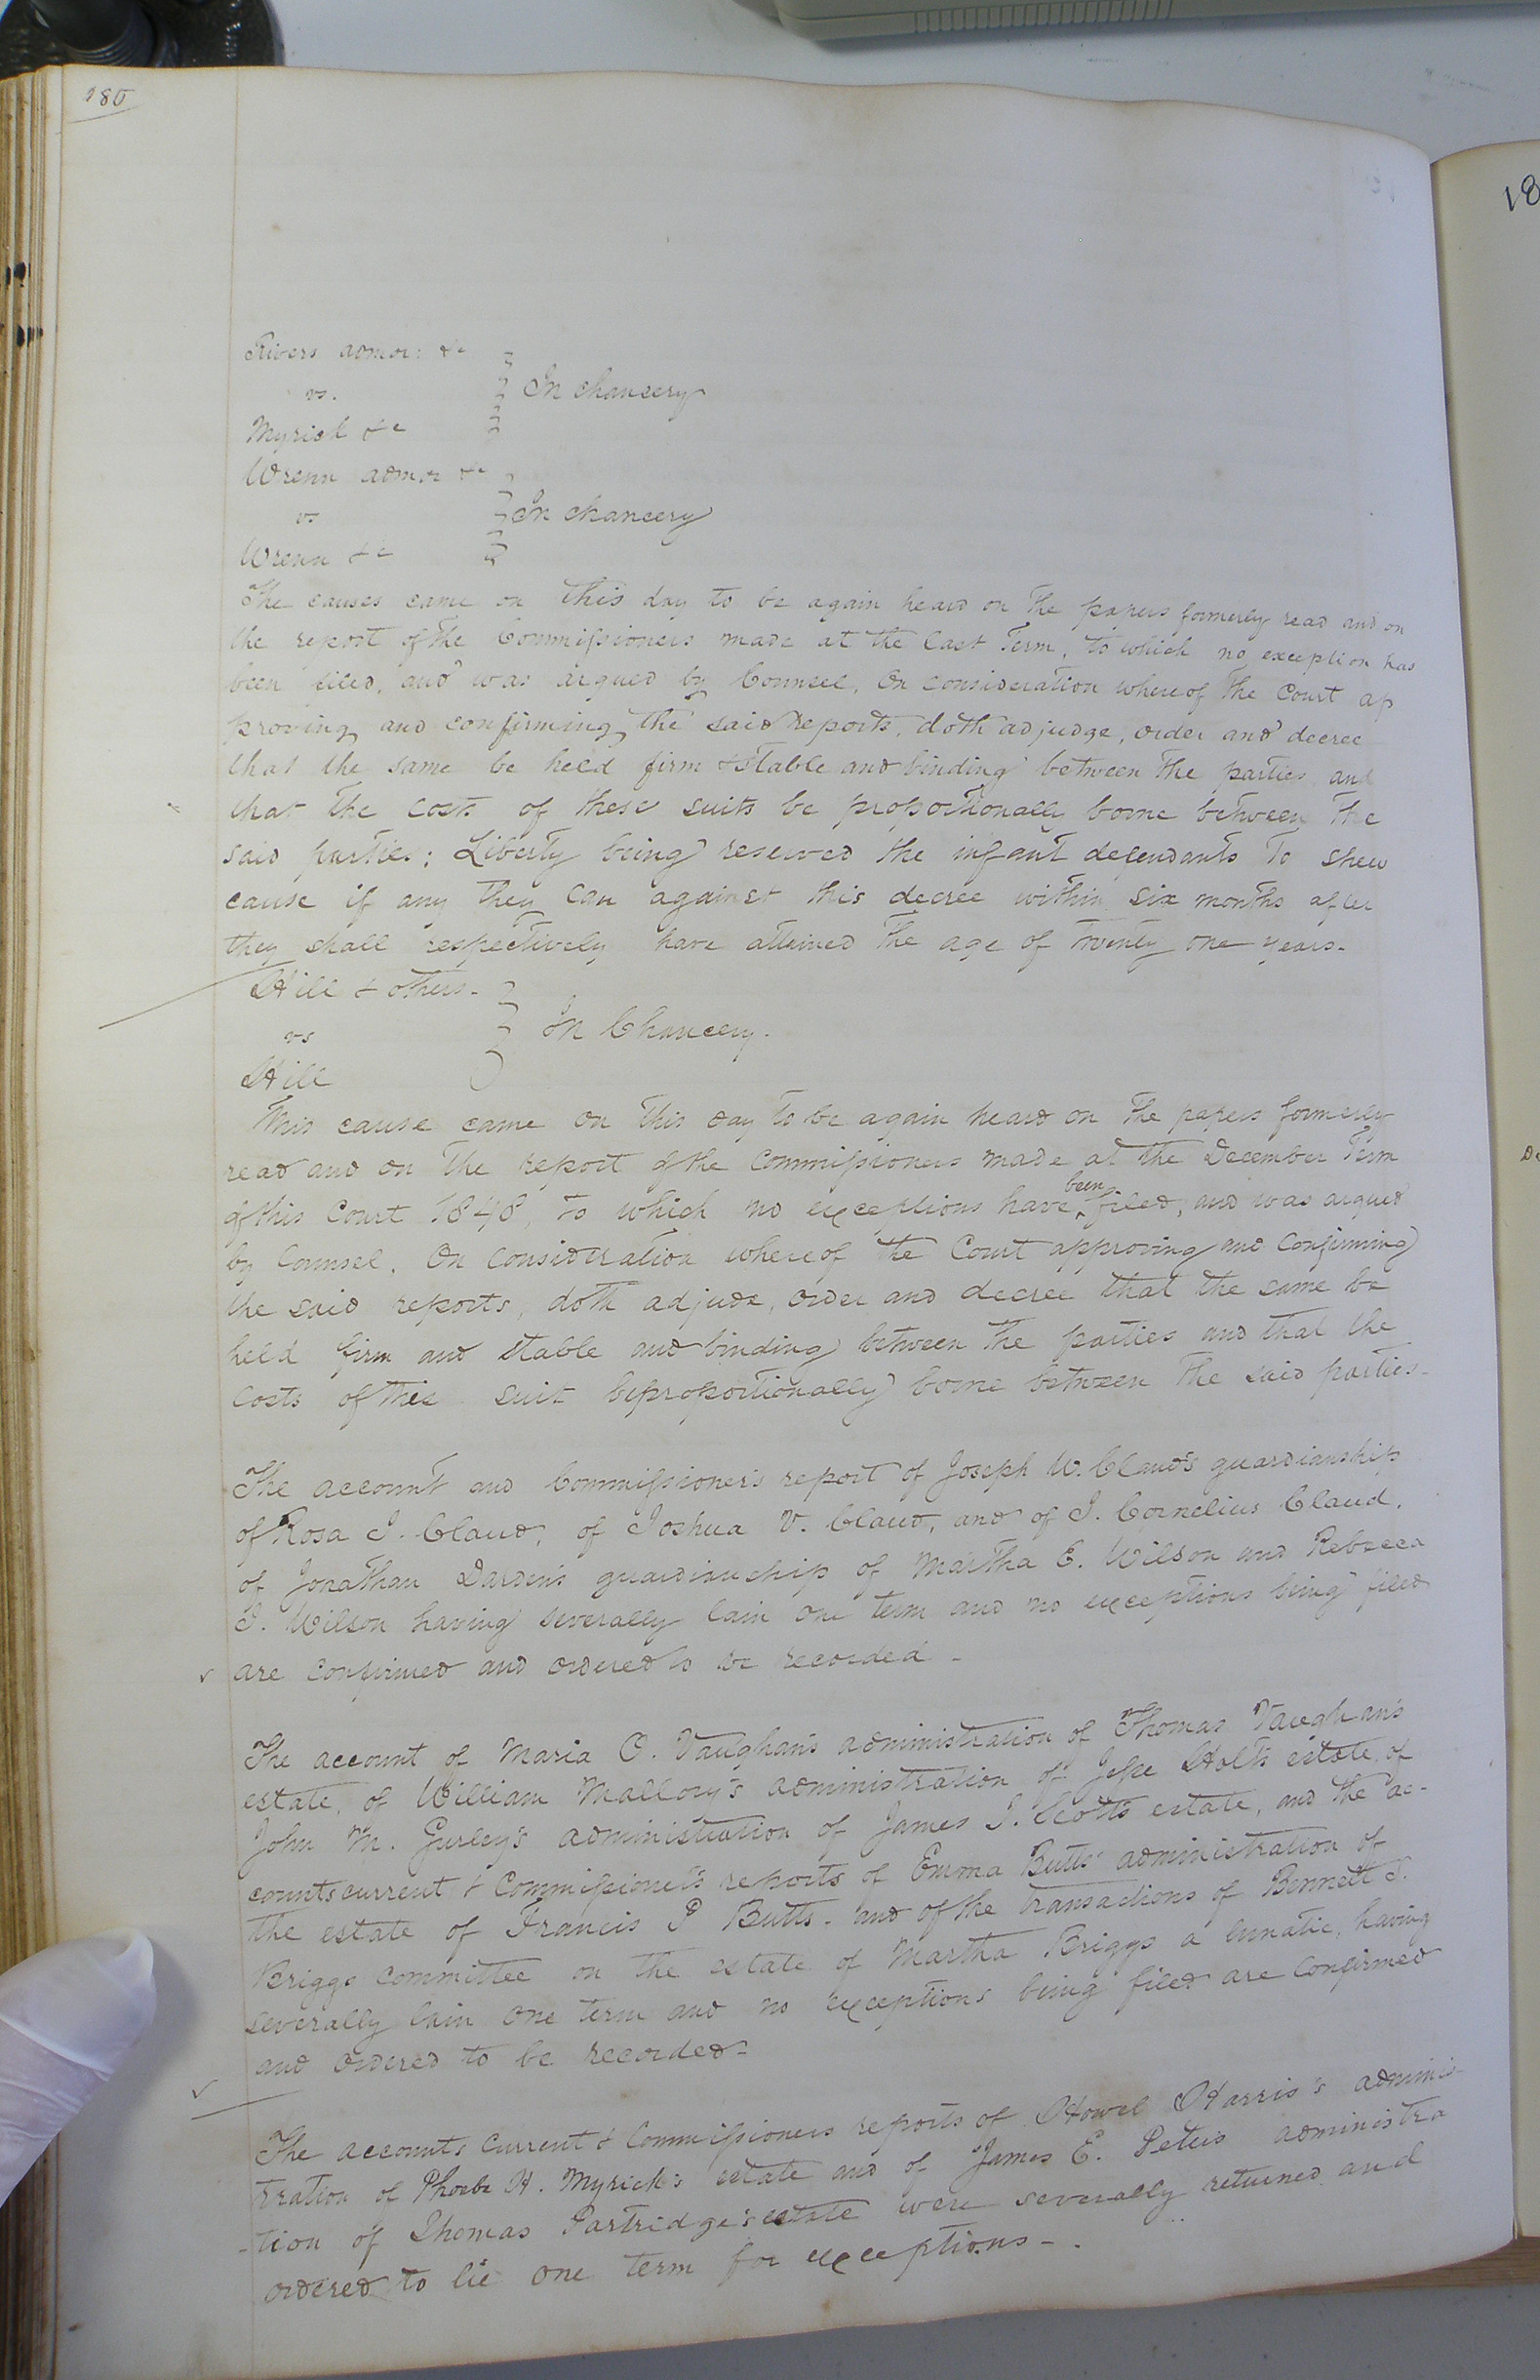 180
18
Rivers admor: &c
vs.
In chancery
Myrick &c
Wrenn admor &c
vs
In chancery
Wrenn &c
The causes came on this day to be again heard on the papers formerly read and on
the report of the Commissioners made at the last Term, to which no exception has
been filed, and was argued by Counsel, On consideration whereof the Court ap
proving and confirming the said reports, doth adjudge, order and decree
that the same be held firm & stable and binding between the parties, and
that the costs of these suits be proportionally borne between the
said parties; Liberty being reserved the infant defendants to shew
cause if any they can against this decree within six months after
they shall respectively have attained the age of twenty one years-
Hill & others-
vs
In Chancery.
Hill
This cause came on this day to be again heard on the papers formerly
read and on the report of the Commissioners made at the December Term
of this Court 1848, to which no exceptions have been filed, and was argued
by Counsel. On consideration whereof the Court approving and confirming
the said reports, doth adjude, order and decree that the same be
held firm and stable and binding between the parties and that the
costs of this suit be proportionally borne between the said parties-
The account and Commissioner's report of Joseph W. Claud's guardianship
of Rosa J. Claud, of Joshua V. Claud, and of J. Cornelius Claud,
of Jonathan Darden's guardianship of Martha E. Wilson and Rebecca
J. Wilson having severally lain one term and no exceptions being filed
are confirmed and ordered to be recorded-
The account of Maria O. Vaughan's administration of Thomas Vaughan's
estate, of William Mallory's administration of Jesse Holt's estate, of
John M. Gurley's administration of James J. Scott's estate, and the ac-
counts current & Commissioner's reports of Emma Butts' administration of
the estate of Francis P Butts- and of the transactions of Bennett S.
Briggs committee on the estate of Martha Briggs a lunatic, having
severally lain one term and no exceptions being filed are confirmed
and ordered to be recorded-
The accounts current & Commissioners reports of Howel Harris's adminis-
tration of Phoebe H. Myrick's estate and of James E. Peters administra
-tion of Thomas Partridge's estate were severally returned and
ordered to lie one term for exceptions-.